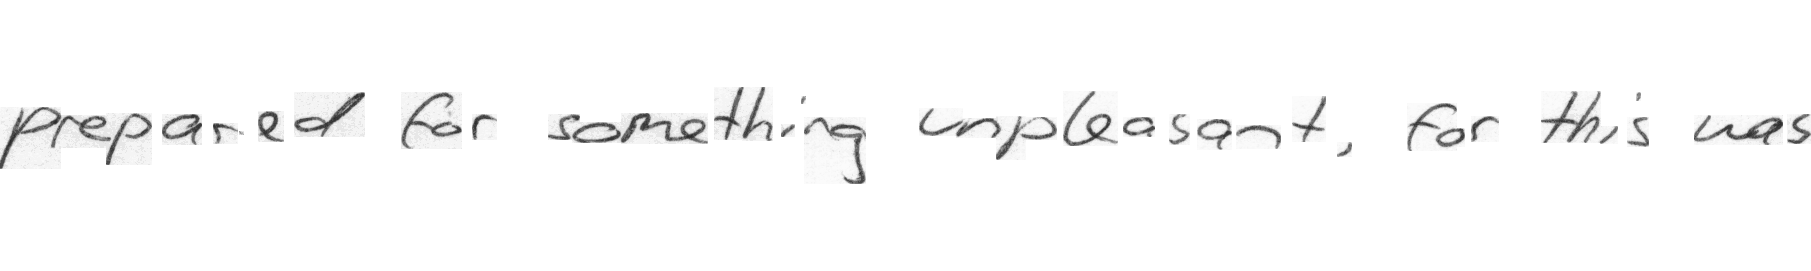 prepared for something unpleasant, for this was